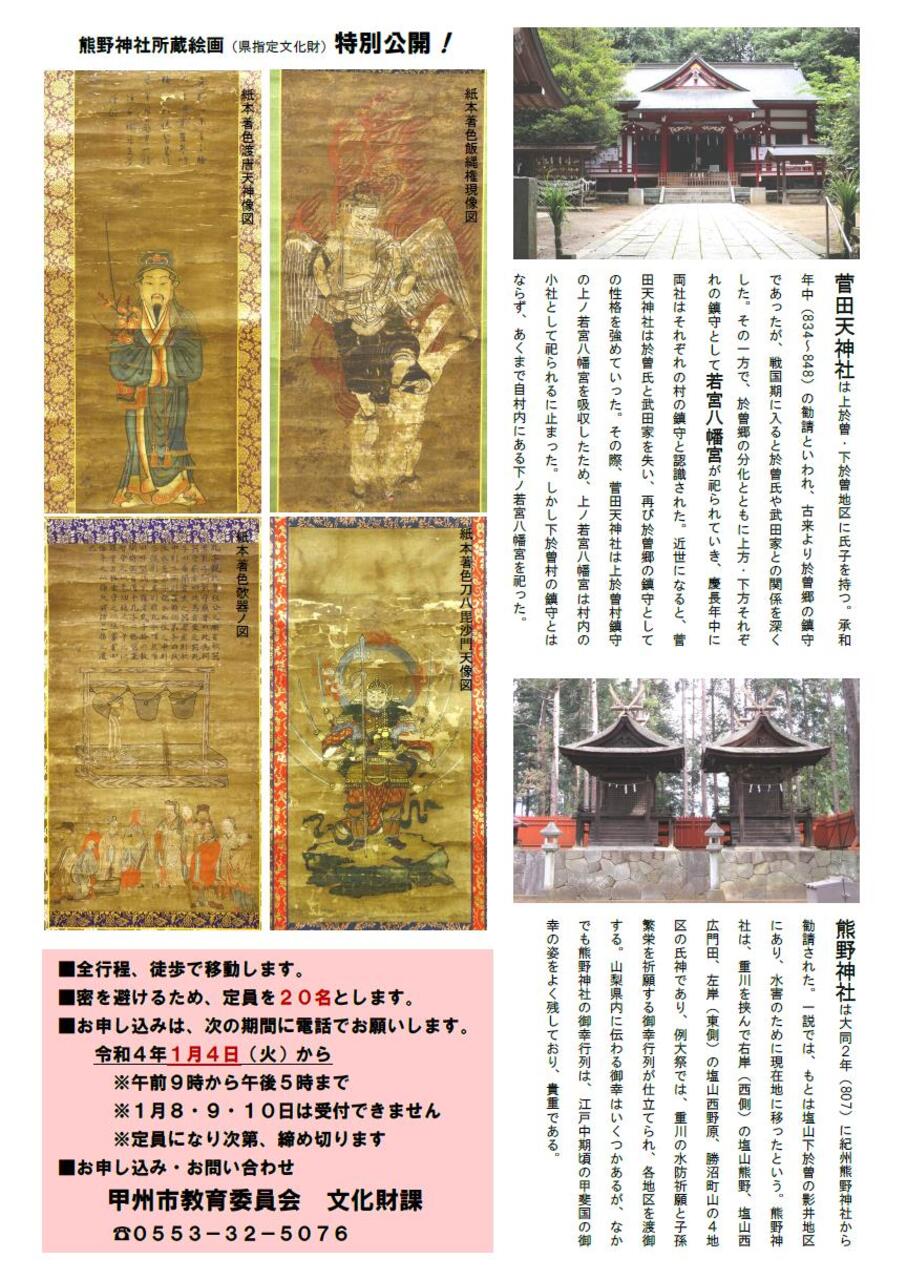 熊野神社所蔵絵画（県指定文化財）特別公開！
紙本著色渡唐天神像図
紙本著色飯縄権現像図
紙本著色欹器ノ図
紙本著色刀八毘沙門天像図
菅田天神社は上於曽・下於曽地区に氏子を持つ。承和
年中（834～848）の勧請といわれ、古来より於曽郷の鎮守
であったが、戦国期に入ると於曽氏や武田家との関係を深く
した。その一方で、於曽郷の分化とともに上方・下方それぞ
れの鎮守として若宮八幡宮が祀られていき、慶長年中に
両社はそれぞれの村の鎮守と認識された。近世になると、菅
田天神社は於曽氏と武田家を失い、再び於曽郷の鎮守として
の性格を強めていった。その際、菅田天神社は上於曽村鎮守
の上ノ若宮八幡宮を吸収したため、上ノ若宮八幡宮は村内の
小社として祀られるに止まった。しかし下於曽村の鎮守とは
ならず、あくまで自村内にある下ノ若宮八幡宮を祀った。
熊野神社は大同２年（807）に紀州熊野神社から
勧請された。一説では、もとは塩山下於曽の影井地区
にあり、水害のために現在地に移ったという。熊野神
社は、重川を挟んで右岸（西側）の塩山熊野、塩山西
広門田、左岸（東側）の塩山西野原、勝沼町山の４地
区の氏神であり、例大祭では、重川の水防祈願と子孫
繁栄を祈願する御幸行列が仕立てられ、各地区を渡御
する。山梨県内に伝わる御幸はいくつかあるが、なか
でも熊野神社の御幸行列は、江戸中期頃の甲斐国の御
幸の姿をよく残しており、貴重である。
■全行程、徒歩で移動します。
■密を避けるため、定員を２０名とします。
■お申し込みは、次の期間に電話でお願いします。
令和４年１月４日（火）から
※午前９時から午後５時まで
※１月８・９・１０日は受付できません
※定員になり次第、締め切ります
■お申し込み・お問い合わせ
甲州市教育委員会　文化財課
☎０５５３－３２－５０７６